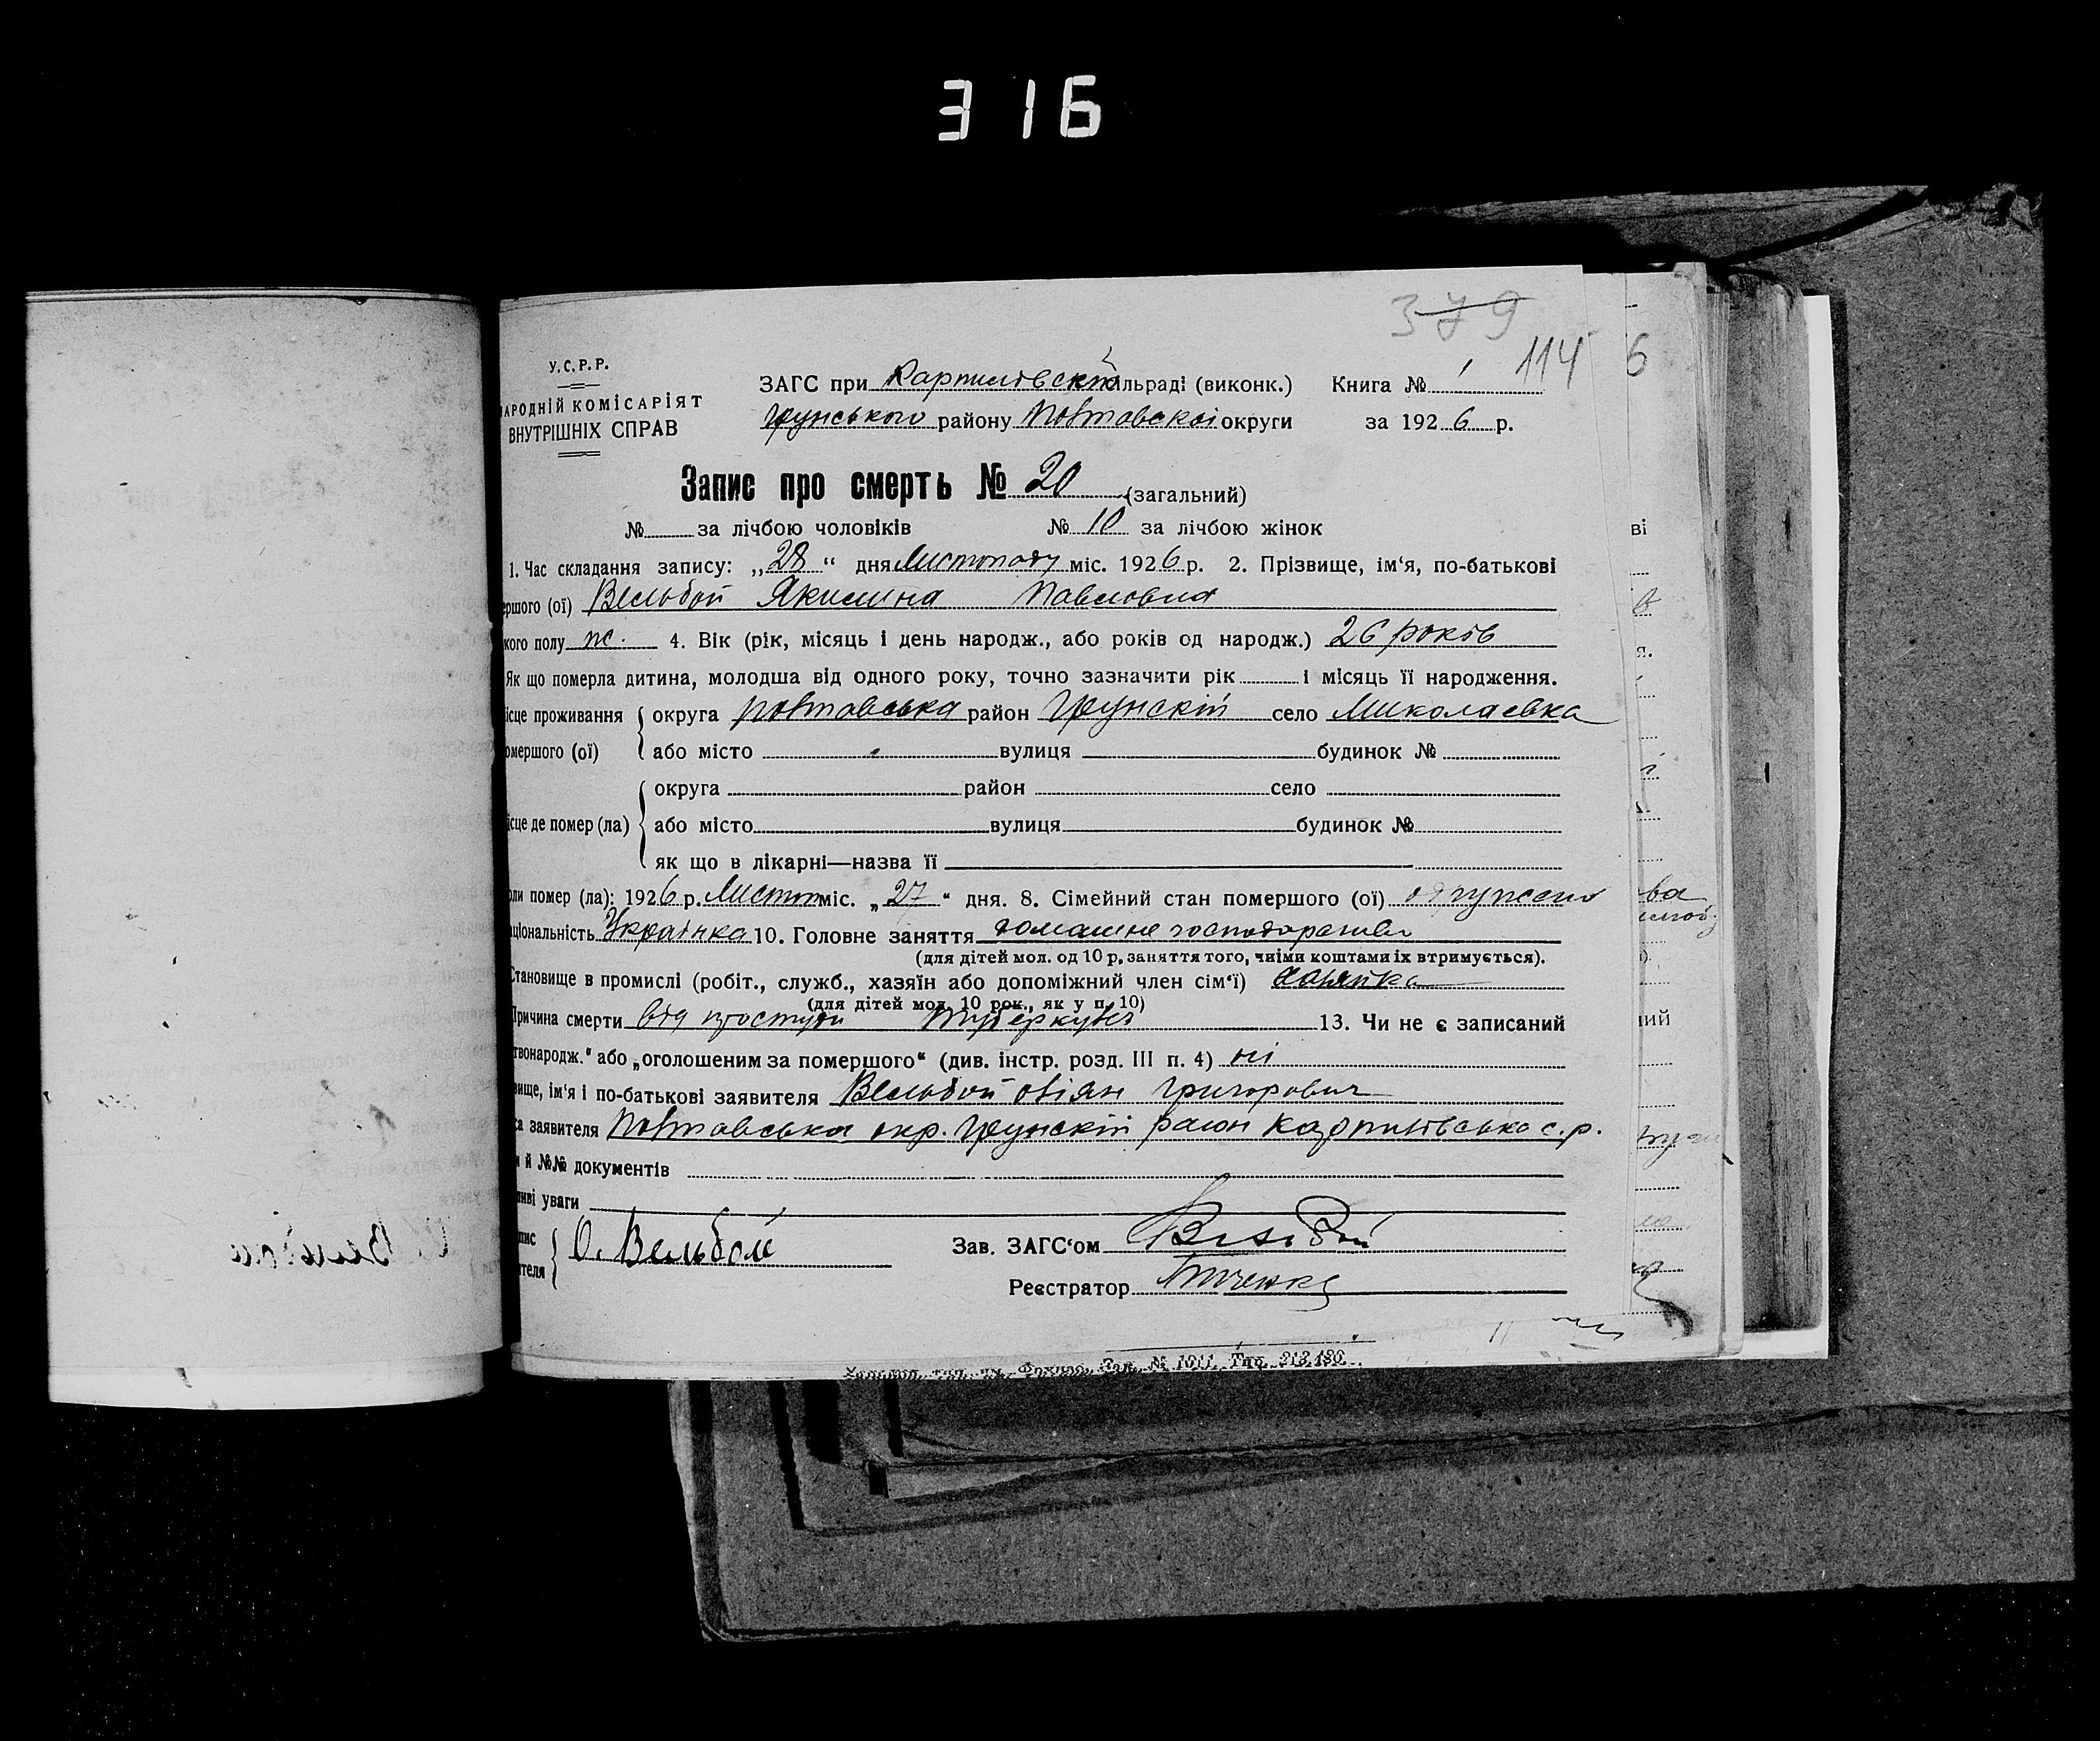 316
379
114
6
У.С.Р.Р.
АРОДНІЙ КОМІСАРІЯТ
ВНУТРІШНІХ СПРАВ
ЗАГС при Карпилівскій льраді (виконк.) Книга № 1
Грунського району Полтавскої округи за 1926 р.
Запис про смерть № 20 (загальний)
№ за лічбою чоловіків № 10 за лічбою жінок
1. Час складання запису: „28“ дня Листопаду міс. 1926 р. 2. Прізвище, ім‘я, по-батькові
ершого (ої) Вельбой Якилина Павловна
кого полу ж. 4. Вік (рік, місяць і день народж., або років од народж.) 26 років
Як що померла дитина, молодша від одного року, точно зазначити рік і місяць її народження.
ісце проживання округа Полтавська район Грунскій село Миколаевка
омершого (ої) або місто вулиця будинок №
округа район село
ісце де помер (ла) або місто вулиця будинок №
як що в лікарні—назва її
оли помер (ла): 1926 р. Листоп міс. „27“ дня. 8. Сімейний стан помершого (ої) одружена
ціональність Українка 10. Головне заняття домашне господарство
(для дітей мол. од 10 р, заняття того, чиїми коштами їх втримується).
Становище в промислі (робіт., служб., хазяїн або допоміжний член сім‘ї) хазяйка
(для дітей мол. 10 рок., як у п. 10)
Причина смерти від простуди Туберкульоз 13. Чи не є записаний
твонародж.“ або „оголошеним за помершого“ (див. інстр. розд. III п. 4) ні
вище, ім‘я і по-батькові заявителя Вельбой Овіян Григорович
са заявителя Полтавська окр. Грунскій район Карпилівська с.р.
и й №№ документів
иві уваги
пис
ителя О. Вельбой Зав. ЗАГС‘ом Вельбой
Реєстратор
Зак. № 1011. Тир. 213.430.